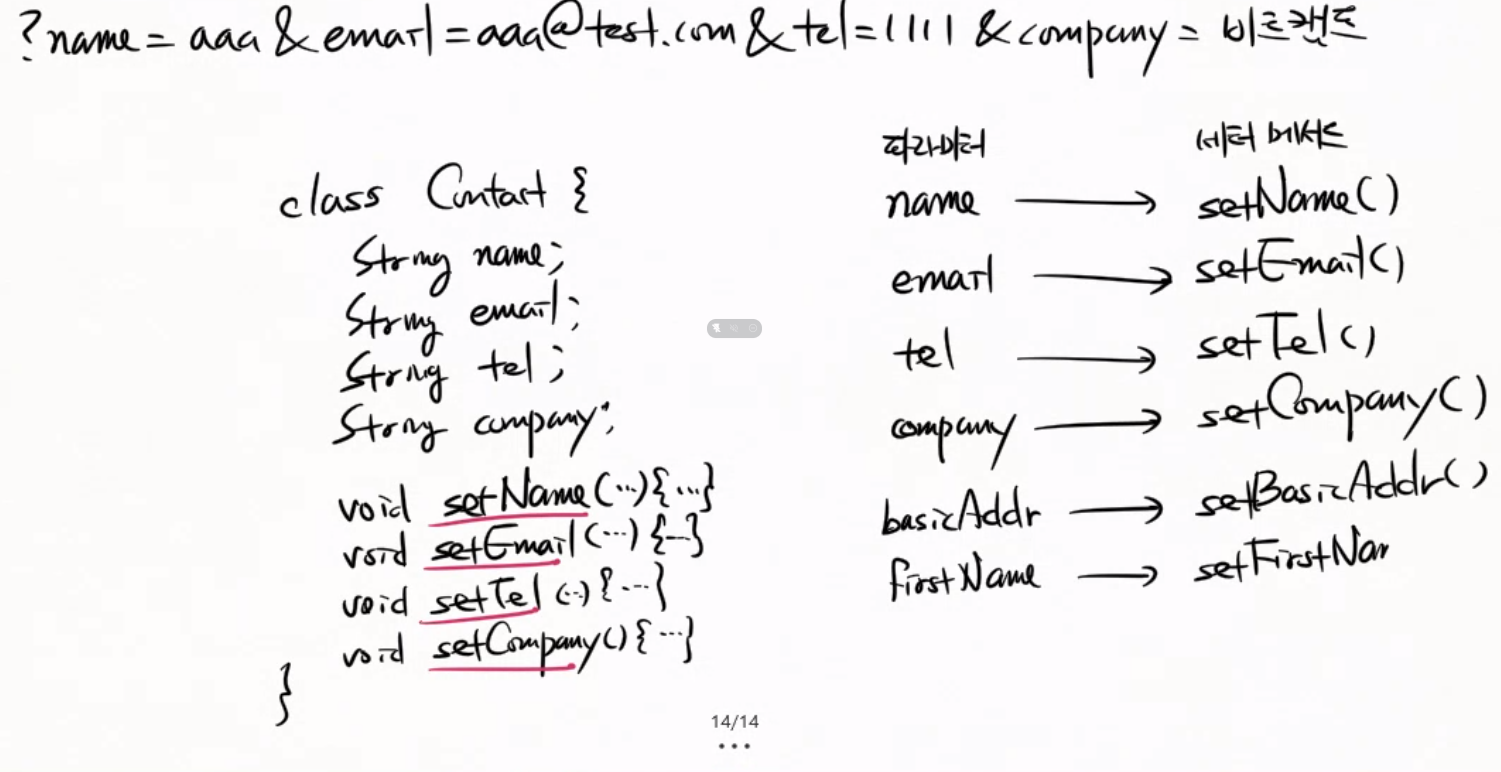 ?name=aaa&email=aaa@test.com&tel=1111&company=비트캠프
class Contact {
String name;
String email;
String tel;
String company;
void setName(...){...}
void setEmail(...){...}
void setTel(...){...}
void setCompany(){...}
}
파라미터 세터 메서드
name → setName()
email → setEmail()
tel → setTel()
company → setCompany()
basicAddr → setBasicAddr()
firstName → setFirstNam
14/14